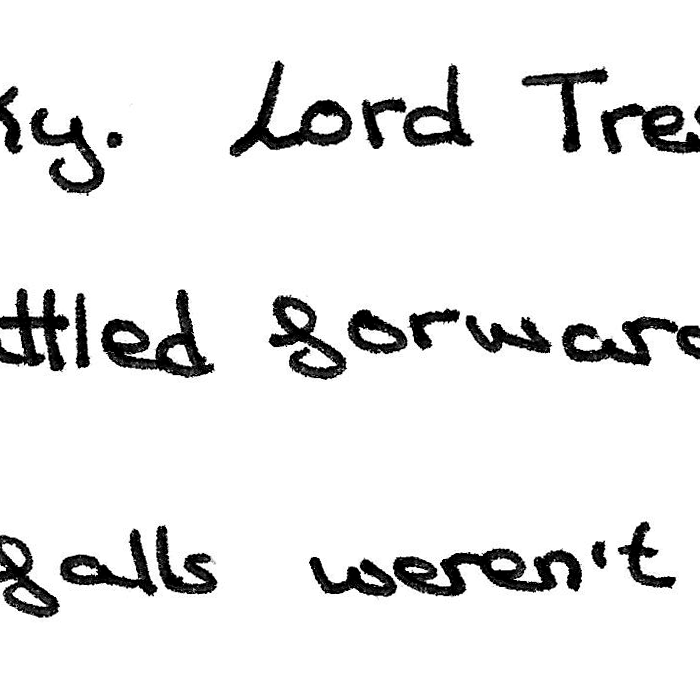 ky. Lord Tres
attled forward
falls weren't